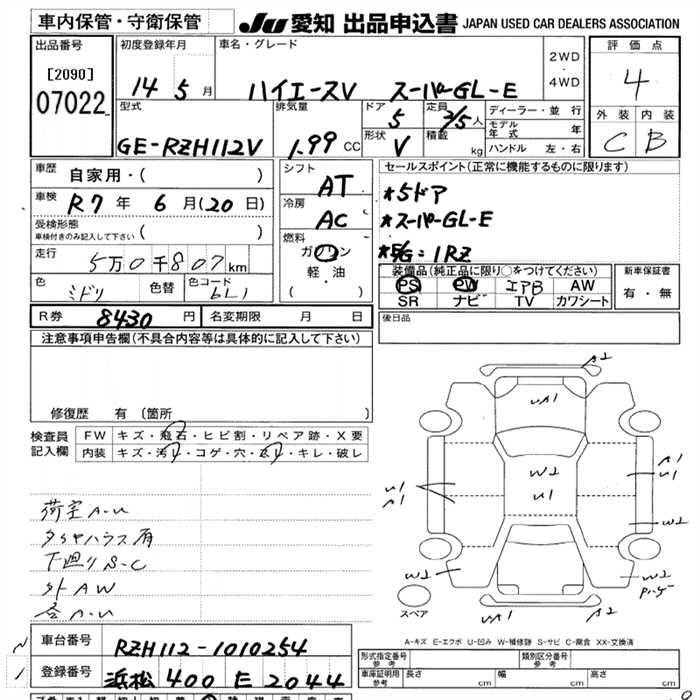 車内保管・守衛保管 JU 愛知 出品申込書 JAPAN USED CAR DEALERS ASSOCIATION
出品番号 初度登録年月 車名・グレード 評価点
[2090] 14 5月 ハイエースV スーパーGL-E 2WD・4WD 4
07022 型式 排気量 ドア 定員 ディーラー・並行 外装 内装
GE-RZH112V 1.99 CC 5 2/5人 モデル年式 年 C B
形状 V 積載 kg ハンドル 左・右
車歴 自家用・( ) シフト AT セールスポイント(正常に機能するものに限ります)
車検 R7年 6月(20日) 冷房 AC *5ドア
受検形態 車検付きのみ記入して下さい ( ) *スーパーGL-E
走行 5万0千807km 燃料 ガソリン *E/G=1RZ
軽・油 ・( ) 装備品(純正品に限り○をつけてください) 新車保証書
色 ミドリ 色替 色コード 6L1 PS PW エアB AW 有・無
SR ナビ TV カワシート
R券 8430円 名変期限 月 日 後日品
注意事項申告欄(不具合内容等は具体的に記入して下さい)
修復歴 有(箇所 )
検査員記入欄 FW キズ・飛石・ヒビ割・リペア跡・X要
内装 キズ・汚レ・コゲ・穴・スレ・キレ・破レ
A2
UA1
W2
U1
U1
A1
A1
U1
W2
W2
W2
荷室A-U
タイヤハウス有
下廻りS-C
外AW
A2
スペア
A-キズ E-エクボ U-凹み W-補修跡 S-サビ C-腐食 XX-交換済
車台番号 RZH112-1010254
登録番号 浜松400 E 2044
形式指定番号 参考 類別区分番号 参考
車庫証明用 参考 長さ cm 幅 cm 高さ cm